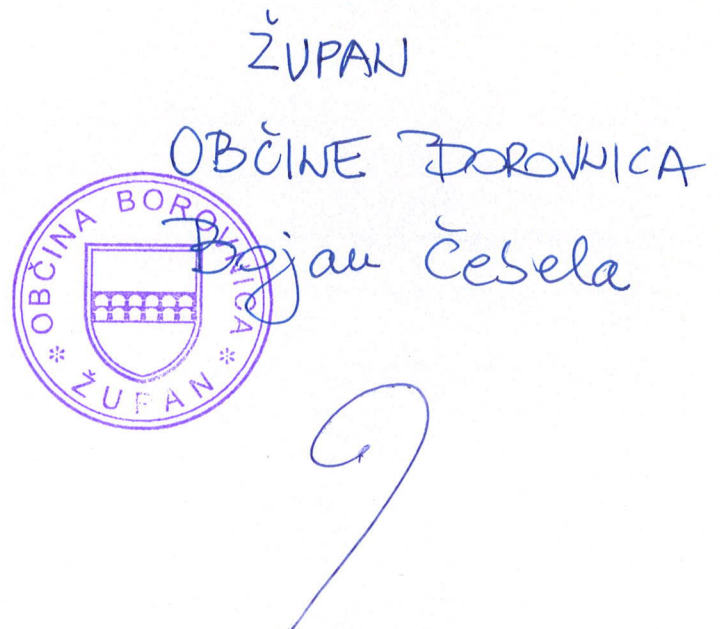 ŽUPAN
OBČINE BOROVNICA
Bojan Čebela
OBČINA BOROVNICA
* ŽUPAN *